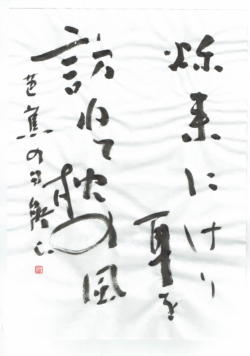 秋来にけり
耳を
訪ねて枕の風
芭蕉の句